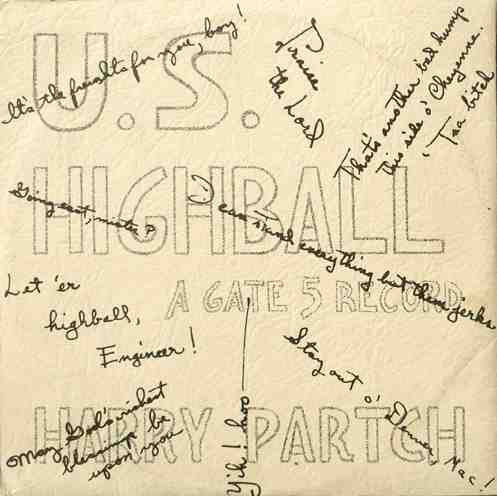 U.S.
HIGHBALL
A GATE 5 RECORD
HARRY PARTCH
It's the freights for you, boy!
Praise
the Lord
That's another bad hump
this side o' Cheyenne.
bitch
Going east, mister?
I can stand everything but them jerks
Let 'er
highball,
Engineer!
Stay out o' Denver, Mac!
May God's richest
blessings be
upon you
Yih! hoo